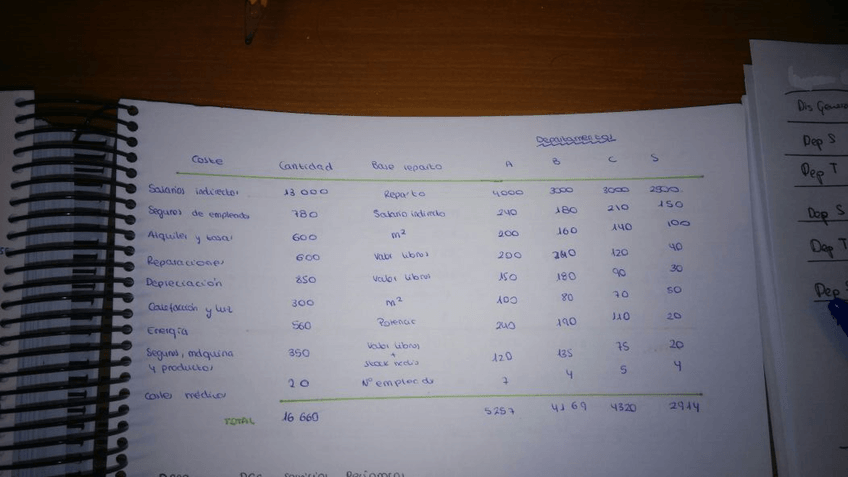 Departamentos
Coste Cantidad Base reparto A B C S
Salarios indirectos 13 000 Reparto 4000 3000 3000
Seguros de empleados 780 Salario indirecto 240 180 210 150
Alquiler y tasas 600 m² 200 160 140 100
Reparaciones 600 Valor libros 200 120 40
Depreciación Valor libros 150 180 90 30
Calefacción y luz 300 m² 100 80 70 50
Energía 560 Potencia 240 190 110 20
Seguros, máquina y productos 350 Valor libros + stock medio 120 135 75 20
Costes médicos 20 Nº empleado 7 4 5 4
TOTAL 16 660 5257 4169 4320 2914
Dep S
Dep T
Dep S
Dep T
Dep